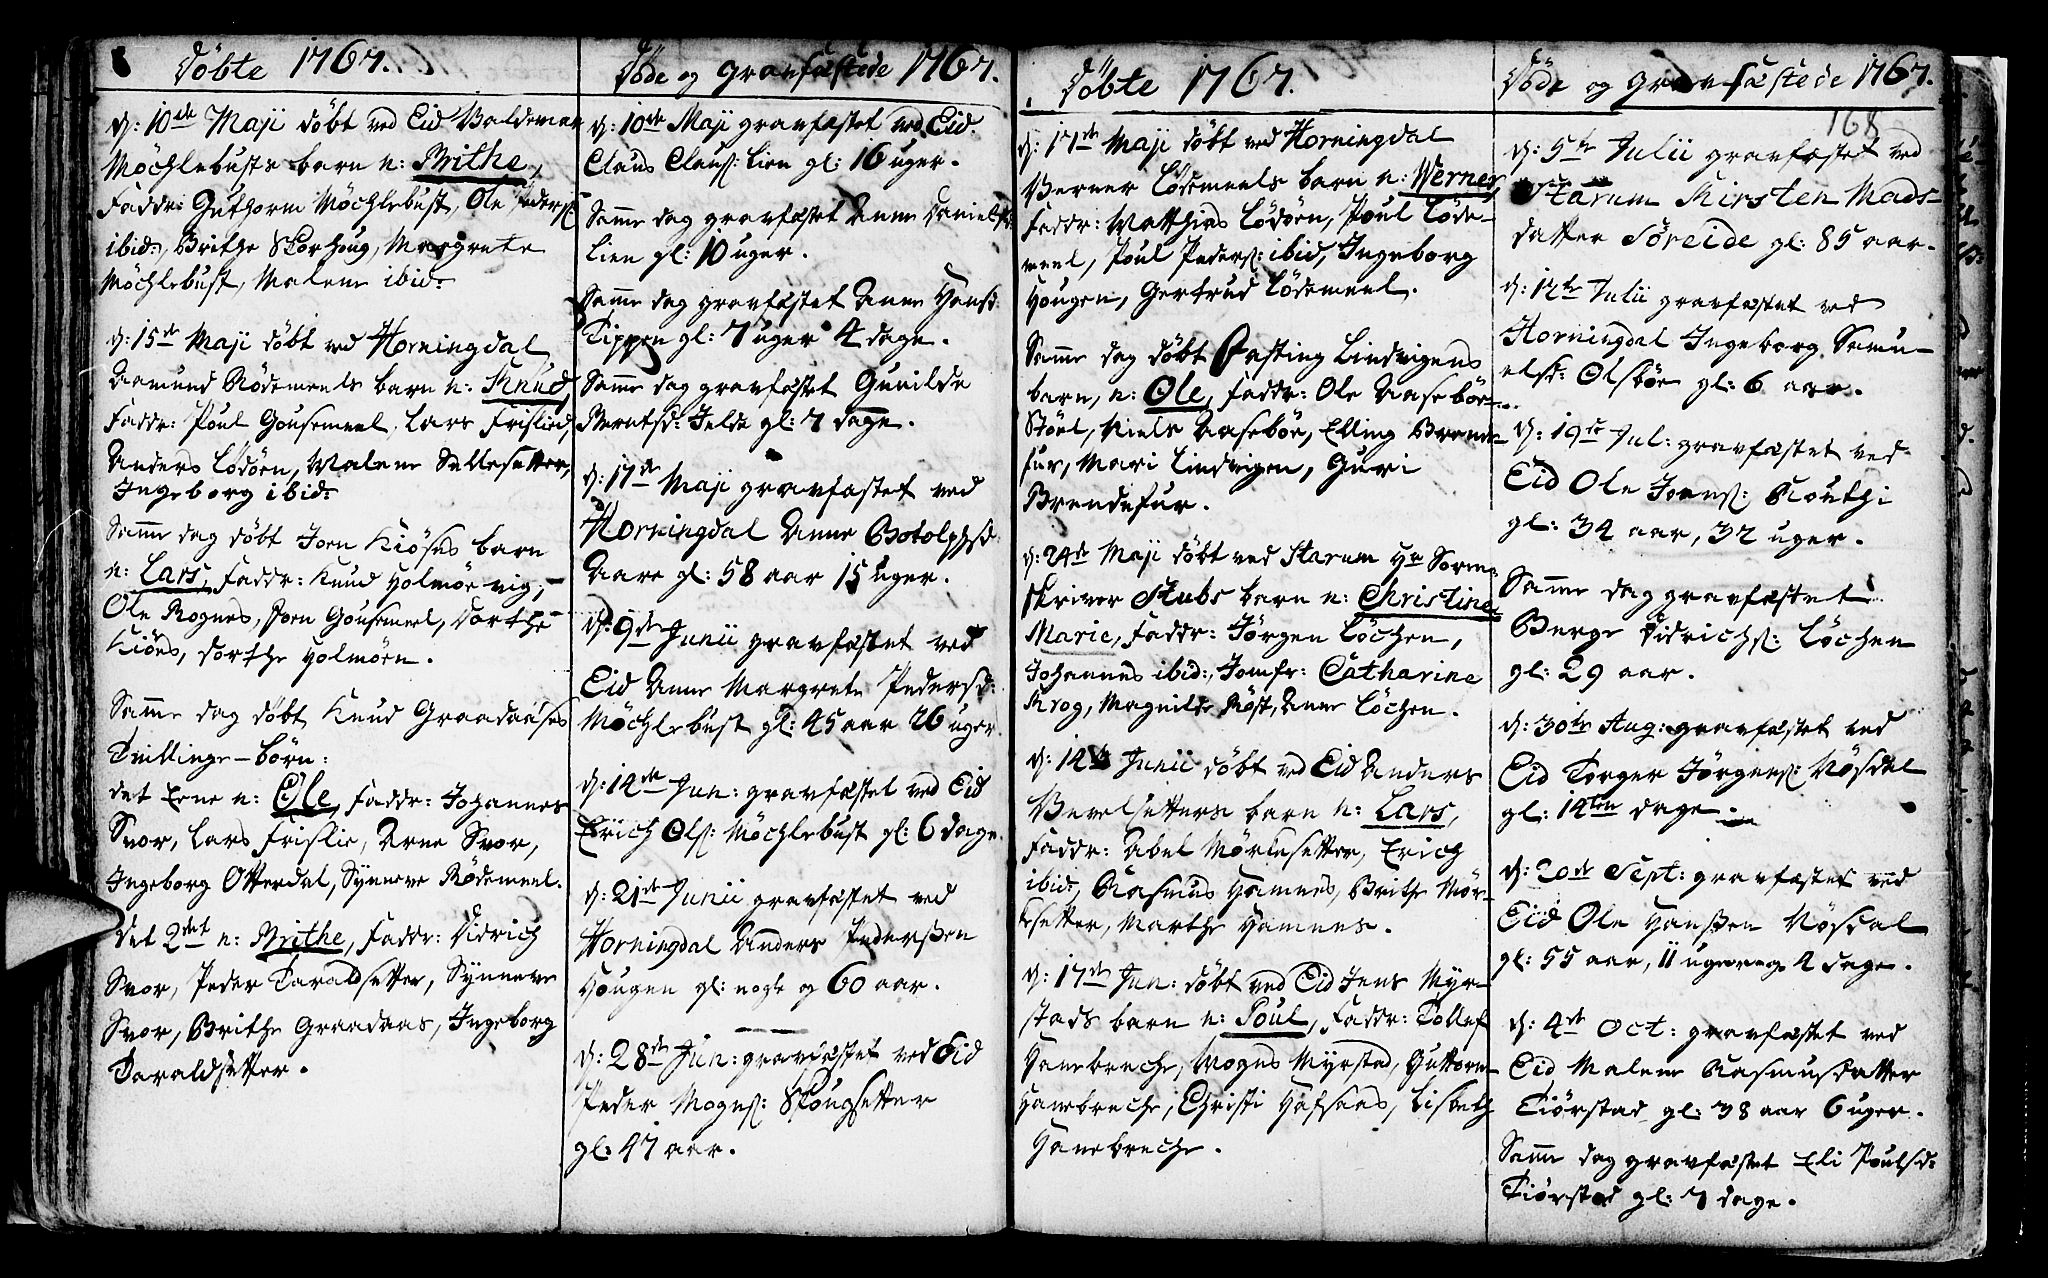 Döbte 1767.
d: 10de Maji döbt ved Eid Baldemar
Möchlebusts barn n: Brithe,
Faddr: Guthorm Möchlebust, Ole Peders:
ibid:, Brithe Skorhoug, Margrete
Möchlebust, Malene ibid:
d: 15de Maji döbt ved Horningdal
Aamund Rödemeels barn n: Knud,
Faddr: Poul Gousemeel, Lars Frislied,
Anders Lödöen, Malene Sællesetter,
Ingeborg ibid:
Samme dag döbt Joen Kiöses barn
n: Lars, Faddr: Knud Holmöevig,
Ole Rognes, Joen Gousemeel, Dorthe
Kiöes, Dorthe Holmöen.
Samme dag döbt Knud Graadaases
Tvillinge-börn:
det Eene n: Ole, Faddr: Johannes
Svor, Lars Frislie, Arne Svor,
Ingeborg Otterdal, Synneve Rödemeel.
det 2det n: Brithe, Faddr: Didrich
Svor, Peder Taraldsetter, Synneve
Svor, Brithe Graadaas, Ingeborg
Taraldsetter.
Döde og gravfæstede 1767.
d: 10de Maji gravfæstet ved Eid
Claus Claus: Lien gl: 16 uger.
Samme dag gravfæstet Anne Danielsd:
Lien gl: 10 uger.
Samme dag gravfæstet Anne Hansd:
Tippen gl: 7 uger 4 dage.
Samme dag gravfæstet Gunilde
Berntsd: Jelde gl: 7 dage.
d: 17de Maji gravfæstet ved
Horningdal Anne Botolphsd:
Aare gl: 58 aar 15 uger.
d: 9de Junii gravfæstet ved
Eid Anne Margrete Pedersd:
Möchlebust gl: 45 aar 26 uger.
d: 14de Jun: gravfæstet ved Eid
Erich Ols: Möchlebust gl: 6 dage.
d: 21de Junii gravfæstet ved
Horningdal Anders Pederssen
Hougen gl: nogle og 60 aar.
d: 28de Jun: gravfæstet ved Eid
Peder Mogns: Skougsetter
gl: 47 aar.
Döbte 1767.
d: 17de Maji döbt ved Horningdal
Berner Lödemeels barn n: Werner,
Faddr: Matthias Lödöen, Poul Löde-
meel, Poul Peders: ibid, Ingeborg
Hougen, Gertrud Lödemeel.
Samme dag döbt Fasting Lindvigens
barn, n: Ole, Faddr: Ole Aaseböe-
Stöel, Niels Aaseböe, Elling Brende-
fur, Mari Lindvigen, Guri
Brendefur.
d: 24de Maji döbt ved Starum Hr Soren-
skriver Stubs barn n: Christine
Marie, Faddr: Jörgen Löchen,
Johannes ibid:, Jomfr: Catharine
Krog, Magnilde Röst, Anne Löchen.
d: 14de Junii döbt ved Eid Anders
Bevelsetters barn n: Lars,
Faddr: Abel Mörkesetter, Erich
ibid:, Rasmus Hamnes, Brithe Mör-
kesetter, Marthe Hamnes.
d: 17de Jun: döbt ved Eid Jens Myr-
stads barn n: Poul, Faddr: Tollef
Hanebreche, Mogns Myrstad, Guttorm
Hanebreche, Christi Hafsaas, Lisbeth
Hanebreche.
Döde og gravfæstede 1767.
168
d: 5te Julii gravfæstet ved
Starum Kirsten Mads-
datter Söreide gl: 85 aar.
d: 12te Julii gravfæstet ved
Horningdal Ingeborg Samu-
elsd: Olsböe gl: 6 aar.
d: 19de Jul: gravfæstet ved
Eid Ole Joens: Routhi
gl: 34 aar, 32 uger.
Samme dag gravfæstet
Berge Didrichs: Löchen
gl: 29 aar.
d: 30te Aug: gravfæstet ved
Eid Torger Jörgens: Nösdal
gl: 14ten dage.
d: 20de Sept: gravfæstet ved
Eid Ole Hanssen Nösdal
gl: 55 aar, 11 uger og 4 dage.
d: 4de Oct: gravfæstet ved
Eid Malene Rasmusdatter
Tiörstad gl: 38 aar 6 uger.
Samme dag gravfæstet Eli Poulsd:
Tiörstad gl: 7 dage.